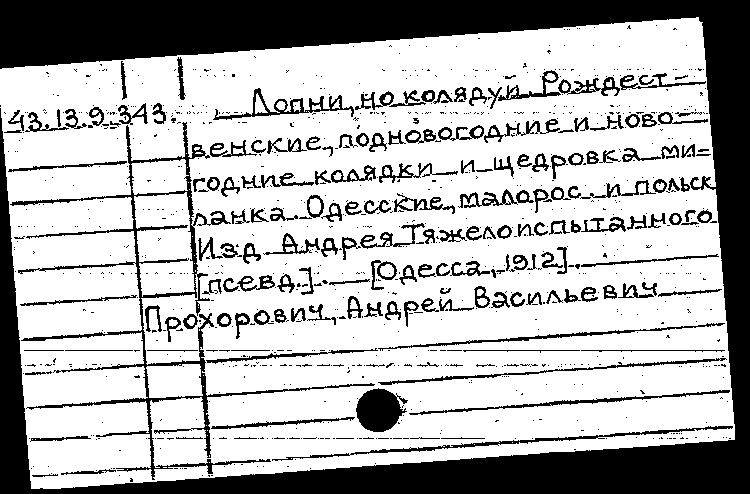 43.13.9.343. Лопни, но колядуй. Рождест-
венские, подновогодние и ново-
годние колядки и щедровка ми-
ланка. Одесские, малорос. и польск
Изд. Андрея Тяжелоиспытанного
[псевд.]. — [Одесса, 1912].
Прохорович, Андрей Васильевич